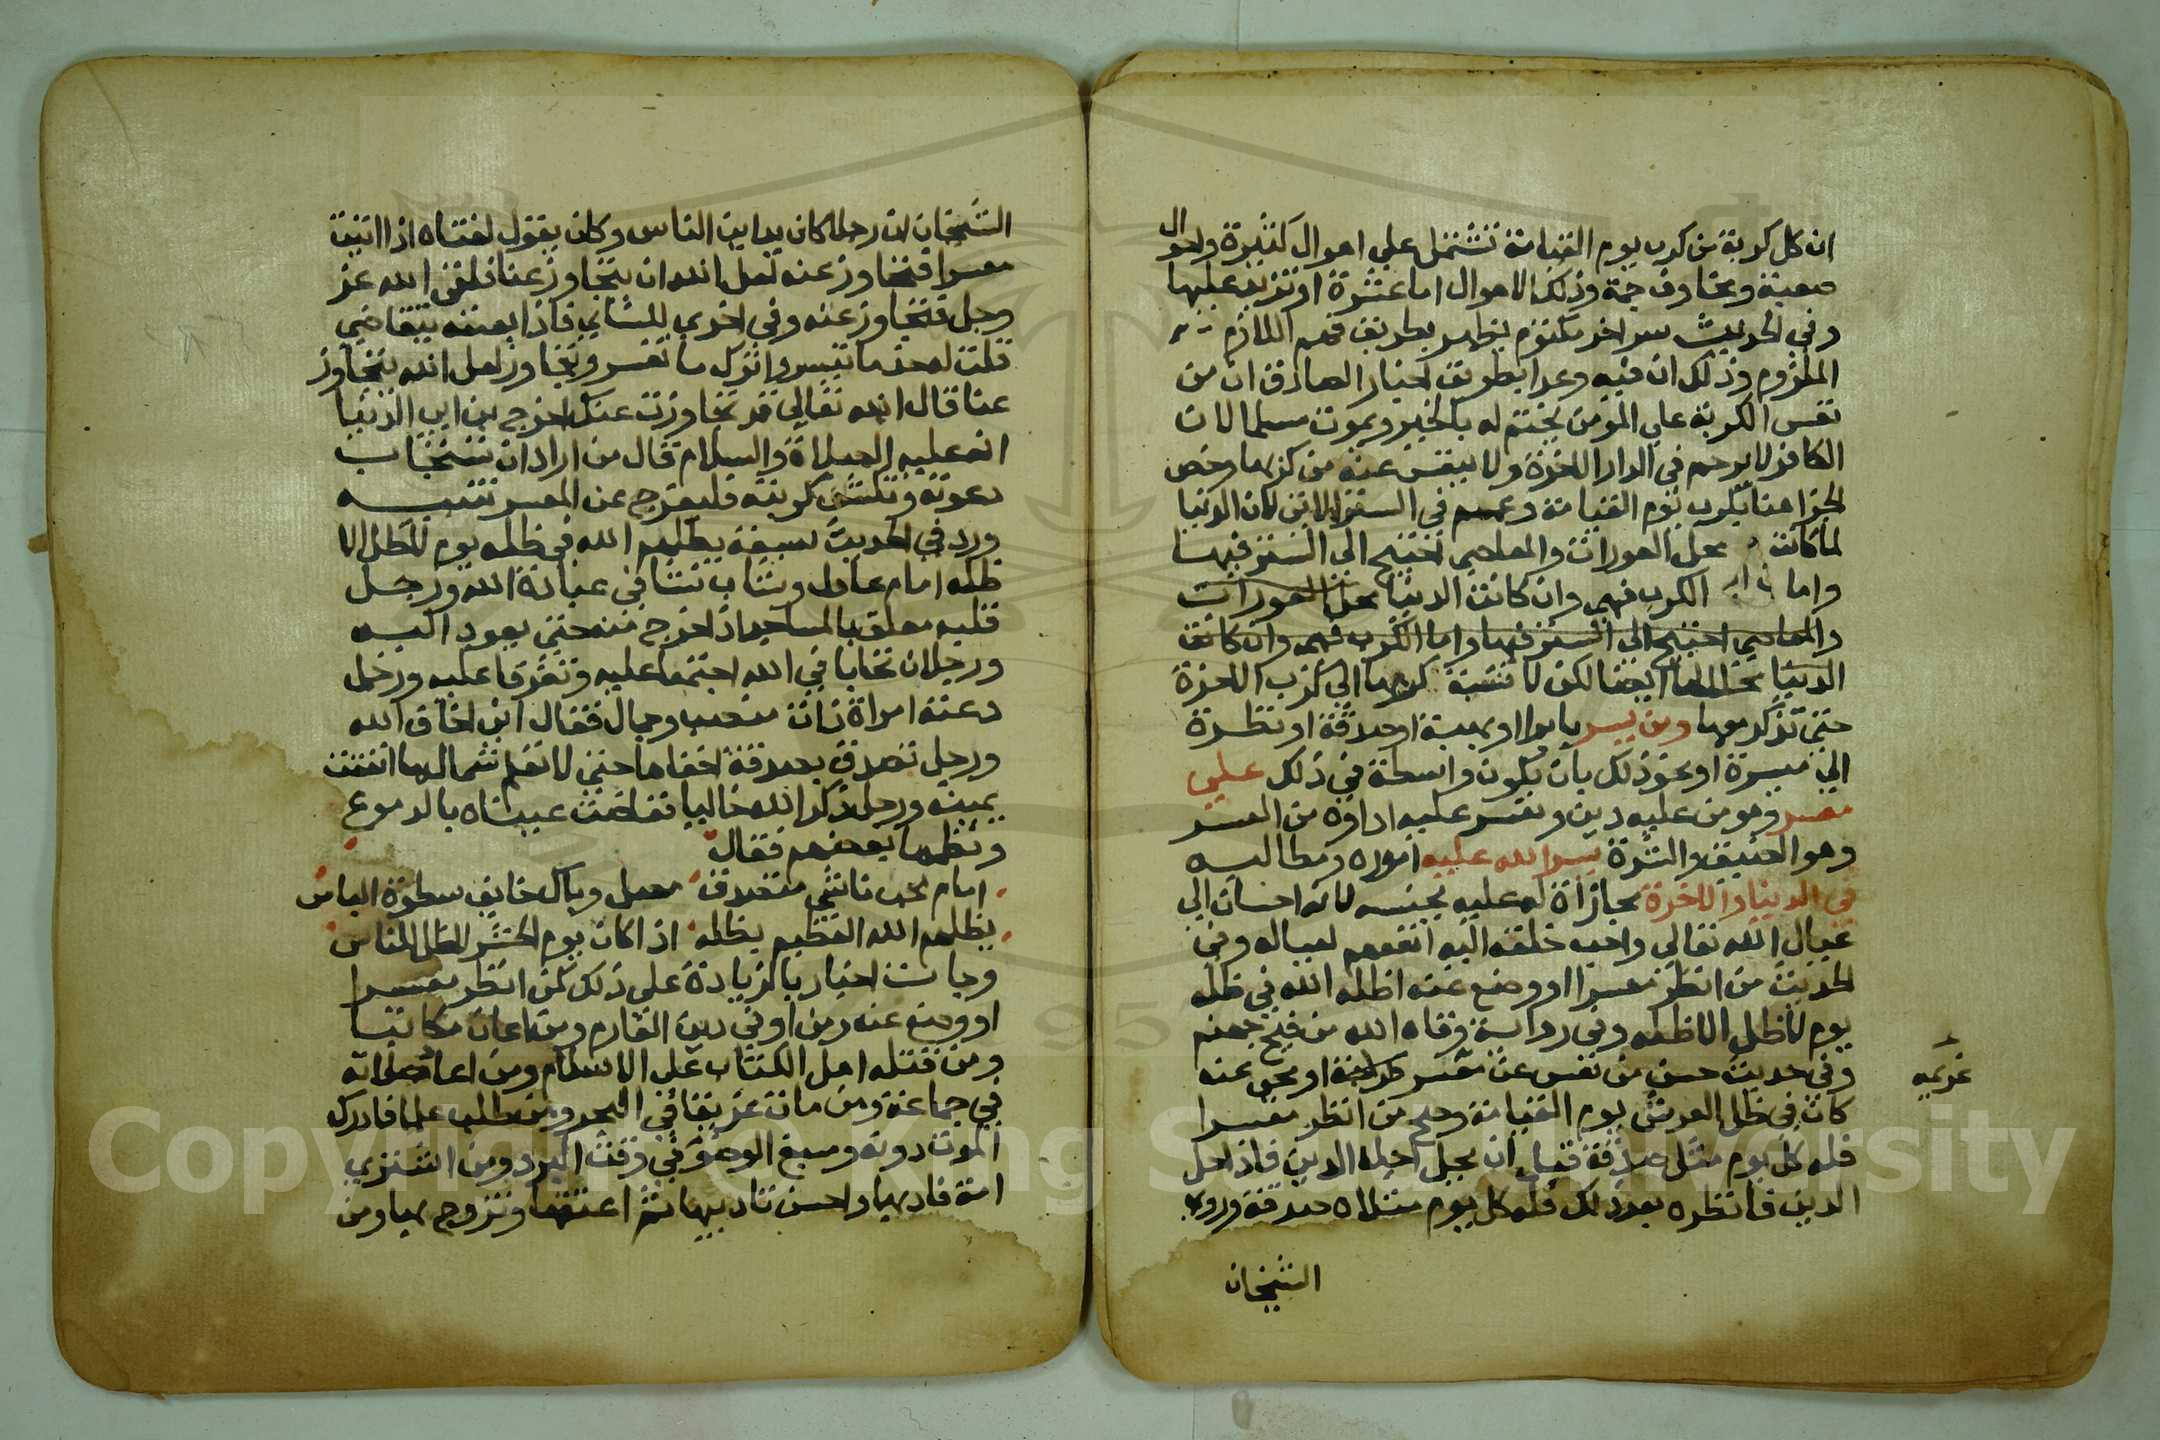 ان كل كربة من كرب يوم القيامة تشتمل علي اهوال كثيرة واحوال
صعبة ومخاوف جمة وذلك الاهوال اما عشرة او تزيد عليها
وفي الحديث سر اخر مكتوم يظهر بطريق فهم اللازم
الملزوم وذلك ان فيه وعدا بطريق اخبار الصادق ان من
نفس الكربة علي المومن يختم له بالخير ويموت مسلما لان
الكافر لا يرحم في الدار الاخرة ولا ينفس عنه من كربها وخص
الجزا هنا بكرب يوم القيامة وعمم في الستر الاتي لان الدنيا
لما كانت محل العورات والمعاصي احتيج الي الستر فيها
واما الكرب فهي وان كانت الدنيا محل العورات
والمعاصي احتيج الي الستر فيها واما الكرب فهي وان كانت
الدنيا محلا لها ايضا لكن لا نسبة كربها الي كرب الاخرة
حتي تذكر معها ومن يسر بابرا او بهبة او صدقة او نظرة
الي ميسرة او نحو ذلك بان يكون واسطة في ذلك علي
معسر وهو من عليه دين وتعسر عليه اداوه من العسر
وهو الضيق والشدة يسر الله عليه اموره ومطالبه
في الدنيا والاخرة مجازاة له عليه بجنسه لانه احسان الي
عيال الله تعالي واحب خلقه اليه انفعهم لعياله وفي
الحديث من انظر معسرا او وضع عنه اظله الله في ظله
يوم لا ظل الا ظله وفي رواية وقاه الله من فيح جهنم
وفي حديث حسن من نفس عن معسر كربة او محي عنه
غريمه
كان في ظل العرش يوم القيامة وصح من انظر معسرا
فله كل يوم مثل صدقة قبل ان يحل اجله الدين فاذا حل
الدين فانظره بعد ذلك فله كل يوم مثلاه صدقة وروي
الشيخان
الشيخان ان رجلا كان يداين الناس وكان يقول لفتاه اذا اتيت
معسرا فتجاوز عنه لعل الله ان يتجاوز عنا فلقي الله عز
وجل فتجاوز عنه وفي اخري للنسائي فاذا بعثته يتقاضي
قلت له خذ ما تيسر واترك ما تعسر وتجاوز لعل الله يتجاوز
عنا قال الله تعالي قد تجاوزت عنك اخرج ابن ابي الدنيا
انه عليه الصلاة والسلام قال من اراد ان تستجاب
دعوته وتكشف كربته فليفرج عن المعسر تنبيه
ورد في الحديث سبعة يظلهم الله في ظله يوم لا ظل الا
ظله امام عادل وشاب نشا في عبادة الله ورجل
قلبه معلق بالمساجد اذا خرج منه حتي يعود اليه
ورجلان تحابا في الله اجتمعا عليه وتفرقا عليه ورجل
دعته امراة ذات منصب وجمال فقال اني اخاف الله
ورجل تصدق بصدقة اخفاها حتي لا تعلم شماله ما انفقت
يمينه ورجل ذكر الله خاليا ففاضت عيناه بالدموع
ونظمها بعضهم فقال
امام محب ناشئ متصدق مصل وباك خايف سطوة الباس
يظلهم الله العظيم بظله اذا كان يوم الحشر لا ظل للناس
وجات اخبار بالزيادة علي ذلك كمن انظر معسرا
او وضع عنه ومن اوفي دين الغارم ومن اعان مكاتبا
ومن قتله اهل الكتاب علي الاسلام ومن
في جماعة ومن مات غريقا في البحر ومن طلب علما فادركه
الموت دونه ومسبغ الوضو في وقت البرد ومن اشتري
امة فادبها واحسن تاديبها ثم اعتقها وتزوج بها ومن
Copyright © King Saud University